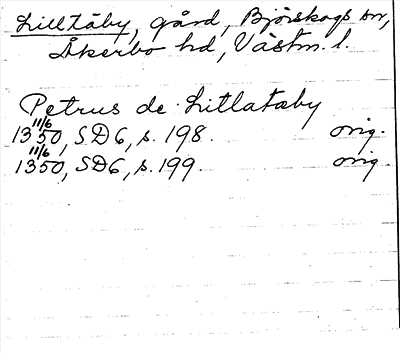 Lilltäby, gård, Björskogs sn,
Åkerbo hd, Västm. l.
Petrus de Litlatæby
1350 11/6, SD6, s. 198. orig.
1350 11/6, SD6, s. 199. orig.